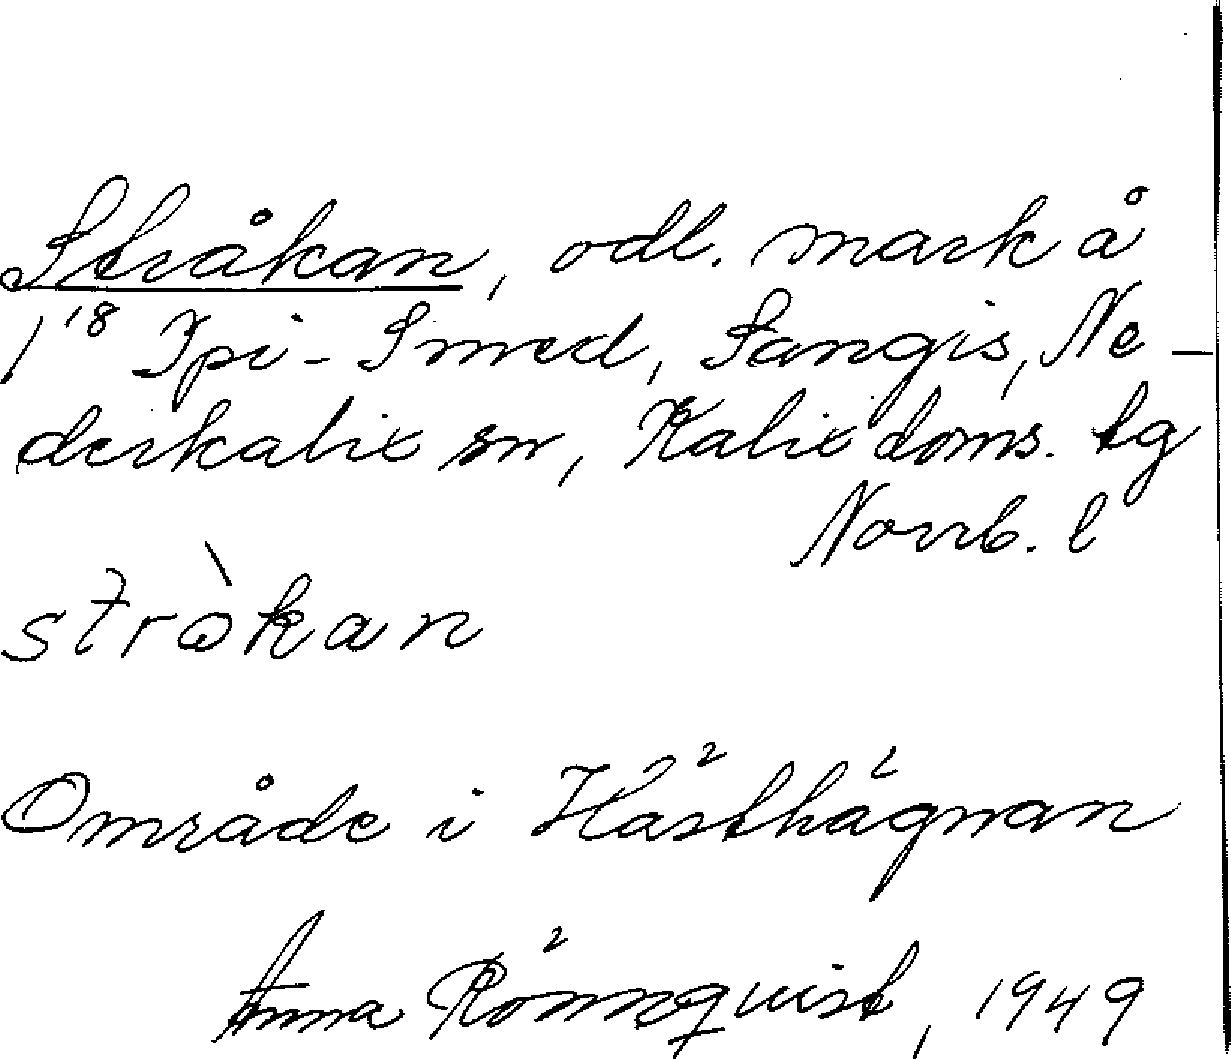 Stråkan, odl. mark å
1¹⁸ Ipi-Smed, Sangis, Ne-
derkalix sn, Kalix doms. tg
Norrb. l
stròkan
Område i Hästhägnan
Anna Rönnquist, 1949